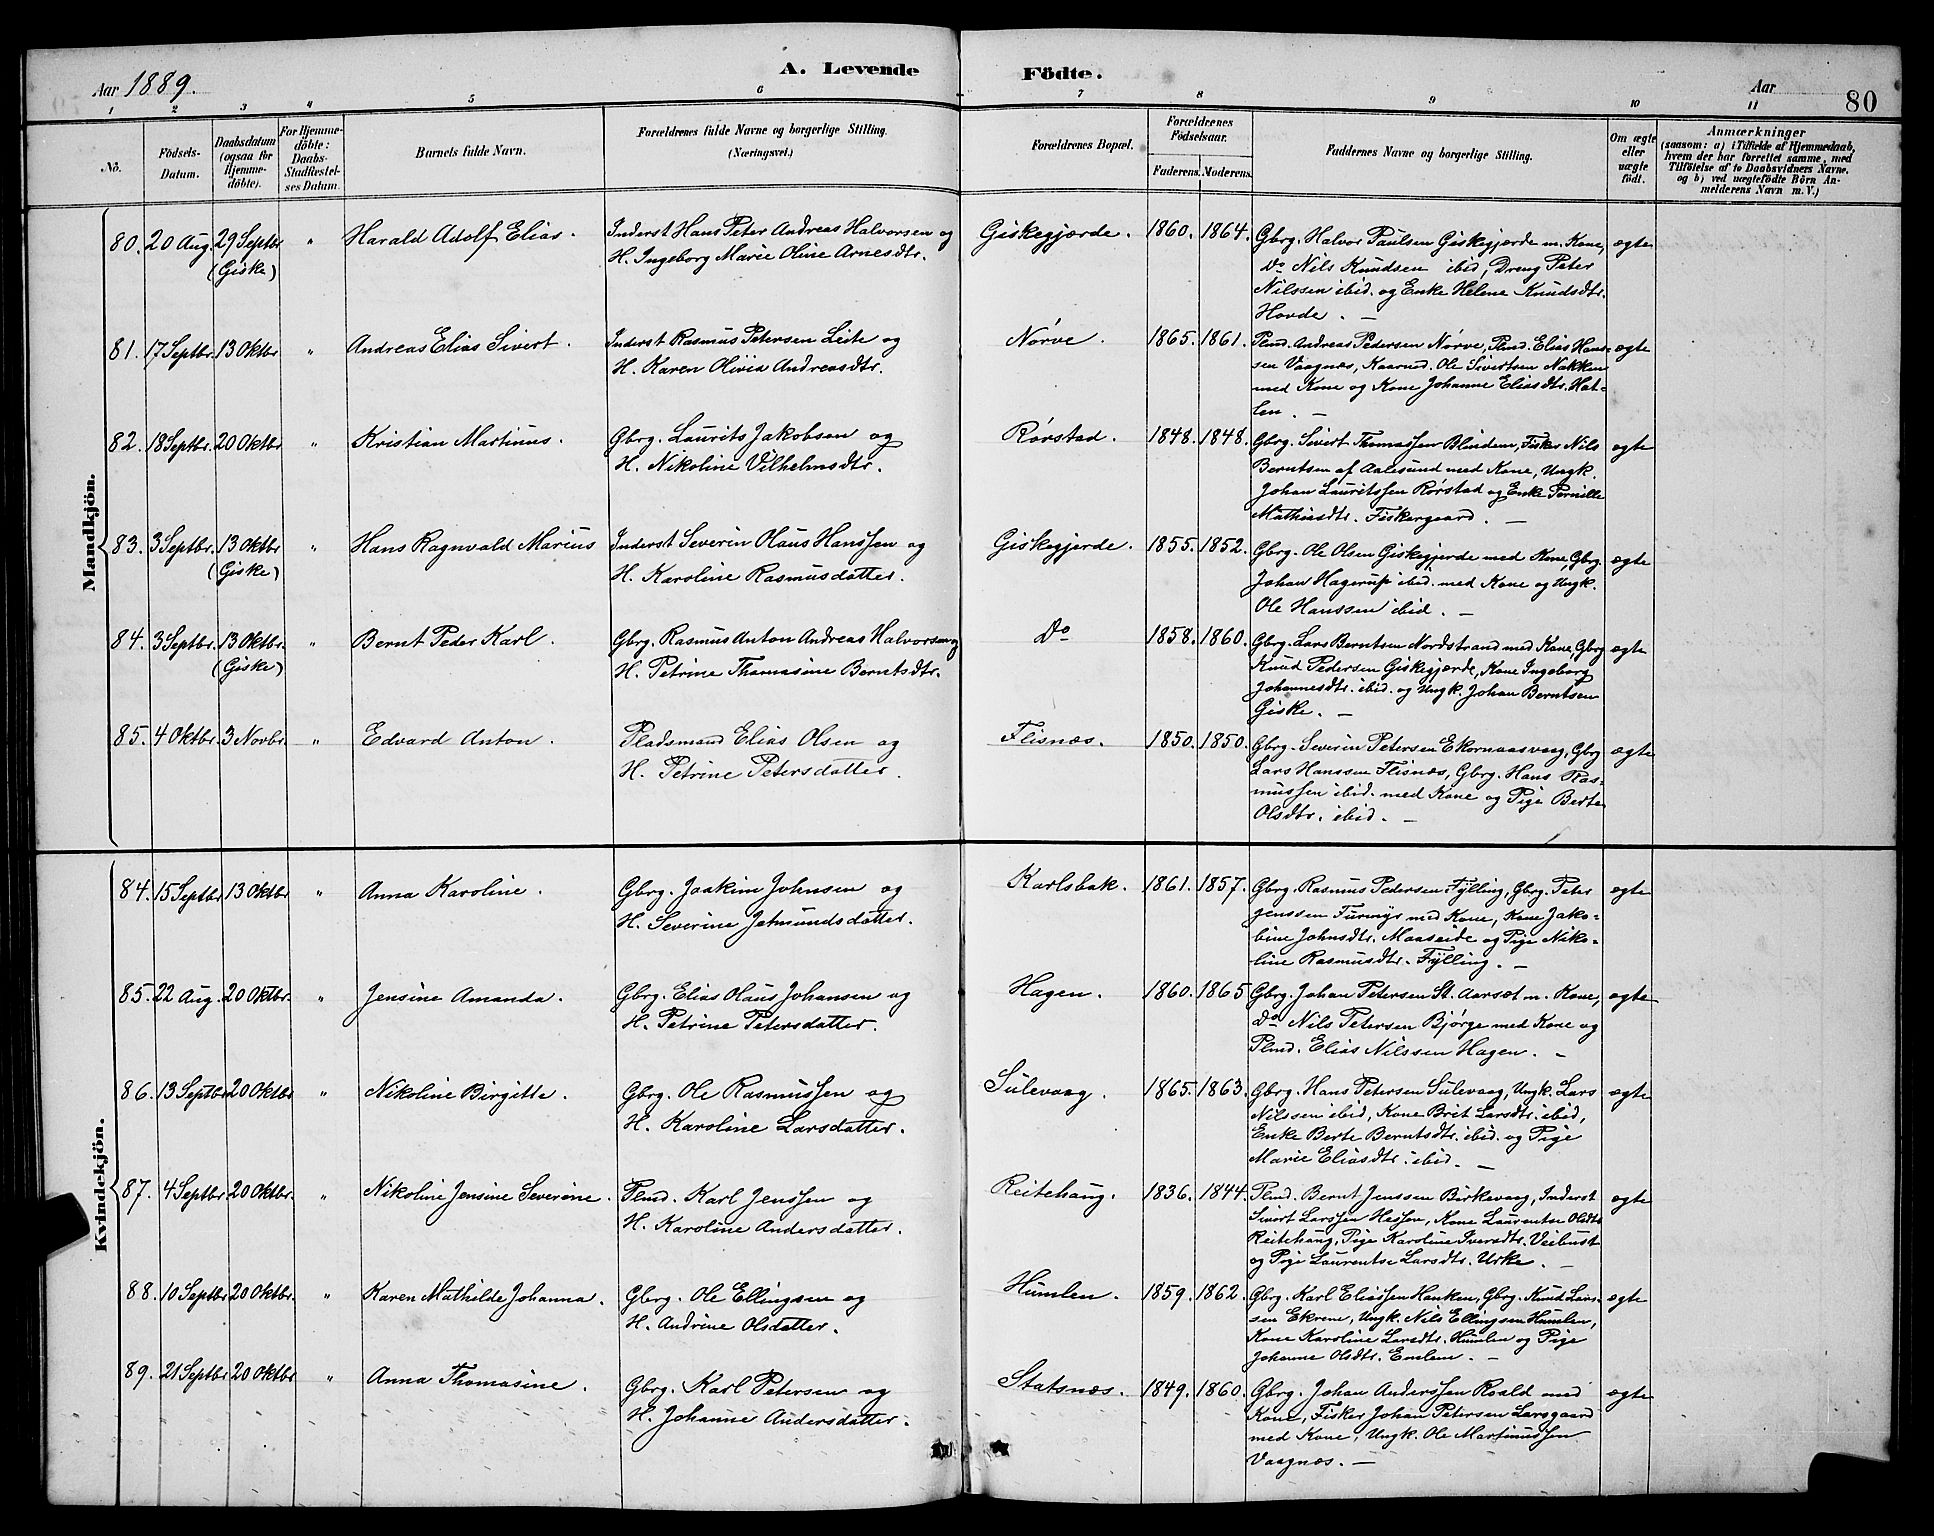 Aar 1889.
A. Levende Födte.
Aar
80
1 2 3 4 5 6 7 8 9 10 11
No.
Födsels-
Datum.
Daabsdatum
(ogsaa for
Hjemme-
döbte).
For Hjemme-
döbte:
Daabs-
Stadfæstel-
ses Datum.
Barnets fulde Navn.
Forældrenes fulde Navne og borgerlige Stilling.
(Næringsvei.)
Forældrenes Bopæl.
Forældrenes
Födselsaar.
Faderens. Moderens.
Faddernes Navne og borgerlige Stilling.
Om ægte
eller
uægte
födt.
Anmærkninger
(saasom: a) i Tilfælde af Hjemmedaab,
hvem der har forrettet samme, med
Tilföielse af to Daabsvidners Navne,
og b) ved uægtefödte Börn An-
melderens Navn m. V.)
Mandkjön.
80. 20 Aug. 29 Septbr (Giske) " Harald Adolf Elias.
Inderst Hans Peter Andreas Halvorsen og
H. Ingeborg Marie Oline Arnesdtr.
Giskegjærde. 1860. 1864.
Gbrg. Halvor Paulsen Giskegjærde m. Kone,
Do Nils Knudsen ibid, Dreng Peter
Nilssen ibid. og Enke Helene Knudsdtr.
Hovde. —
ægte
81. 17 Septbr. 13 Oktbr " Andreas Elias Sivert.
Inderst Rasmus Petersen Leite og
H. Karen Olivia Andreasdtr.
Nørve. 1865. 1861.
Plmd. Andreas Pedersen Nørve, Plmd. Elias Hans-
sen Vaagnæs, Kaarmd. Ole Sivertsen Nakken
med Kone og Kone Johanne Eliasdtr. Hat-
len. —
ægte
82. 18 Septbr. 20 Oktbr " Kristian Martinus.
Gbrg. Laurits Jakobsen og
H. Nikoline Vilhelmsdtr.
Rørstad. 1848. 1848.
Gbrg. Sivert Thomassen Blindem, Fisker Nils
Berntsen af Aalesund med Kone, Ungk.
Johan Lauritssen Rørstad og Enke Pernille
Mathiasdtr. Fiskergaard. —
ægte
83. 3 Septbr. 13 Oktbr (Giske) " Hans Ragnvald Marius
Inderst Severin Olaus Hanssen og
H. Karoline Rasmusdatter.
Giskegjerde. 1855. 1852.
Gbrg. Ole Olsen Giskegjerde med Kone, Gbrg.
Johan Hagerup ibid. med Kone og Ungk.
Ole Hanssen ibid. —
ægte
84. 3 Septbr. 13 Oktbr. (Giske) " Bernt Peder Karl.
Gbrg. Rasmus Anton Andreas Halvorsen og
H. Petrine Thomasine Berntsdtr.
Do 1858. 1860.
Gbrg. Lars Berntsen Nordstrand med Kone, Gbrg
Knud Pedersen Giskegjærde, Kone Ingeborg
Johannesdtr. ibid. og Ungk. Johan Berntsen
Giske. —
ægte
85. 4 Oktbr. 3 Novbr. " Edvard Anton.
Pladsmand Elias Olsen og
H. Petrine Petersdatter.
Flisnæs. 1850. 1850.
Gbrg. Severin Petersen Ekornaasvaag, Gbrg
Lars Hanssen Flisnæs, Gbrg. Hans Ras-
mussen ibid. med Kone og Pige Berte
Olsdtr. ibid. —
ægte
Kvindekjön.
84. 15 Septbr 13 Oktbr " Anna Karoline.
Gbrg. Joakim Johnsen og
H. Severine Jetmundsdatter.
Karlsbak. 1861. 1857.
Gbrg. Rasmus Pedersen Fylling, Gbrg. Peter
Jenssen Furmyr med Kone, Kone Jako-
bine Johnsdtr. Maaseide og Pige Niko-
line Rasmusdtr. Fylling. —
ægte
85. 22 Aug. 20 Oktbr. " Jensine Amanda.
Gbrg. Elias Olaus Johansen og
H. Petrine Petersdatter.
Hagen. 1860. 1865
Gbrg. Johan Petersen St. Aarsæt m. Kone,
Do Nils Petersen Bjørge med Kone og
Plmd. Elias Nilssen Hagen. —
ægte
86. 13 Septbr 20 Oktbr " Nikoline Birgitte.
Gbrg. Ole Rasmussen og
H. Karoline Larsdatter.
Sulevaag. 1865. 1863.
Gbrg. Hans Petersen Sulevaag, Ungk. Lars
Nilssen ibid, Kone Brit Larsdtr. ibid,
Enke Berte Berntsdtr. ibid. og Pige
Marie Eliasdtr. ibid. —
ægte
87. 4 Septbr 20 Oktbr. " Nikoline Jensine Severine.
Plmd. Karl Jenssen og
H. Karoline Andersdatter.
Reitehaug. 1836. 1844.
Plmd. Bernt Jenssen Birkevaag, Inderst
Sivert Larssen Hessen, Kone Laurentse Olsdtr
Reitehaug, Pige Karoline Iversdtr. Veibust
og Pige Laurentse Larsdtr. Urke. —
ægte
88. 10 Septbr 20 Oktbr. " Karen Mathilde Johanna.
Gbrg. Ole Ellingsen og
H. Andrine Olsdatter.
Humlen. 1859. 1862.
Gbrg. Karl Eliassen Hanken, Gbrg. Knud Lars-
sen Ekrene, Ungk. Nils Ellingsen Humlen,
Kone Karoline Larsdtr. Humlen og Pige
Johanne Olsdtr. Emlem. —
ægte
89. 21 Septbr 20 Oktbr " Anna Thomasine.
Gbrg. Karl Petersen og
H. Johanne Andersdatter.
Statsnæs. 1849. 1860.
Gbrg. Johan Anderssen Roald med
Kone, Fisker Johan Petersen Larsgaard
med Kone, Ungk. Ole Martinussen
Vaagnæs. —
ægte